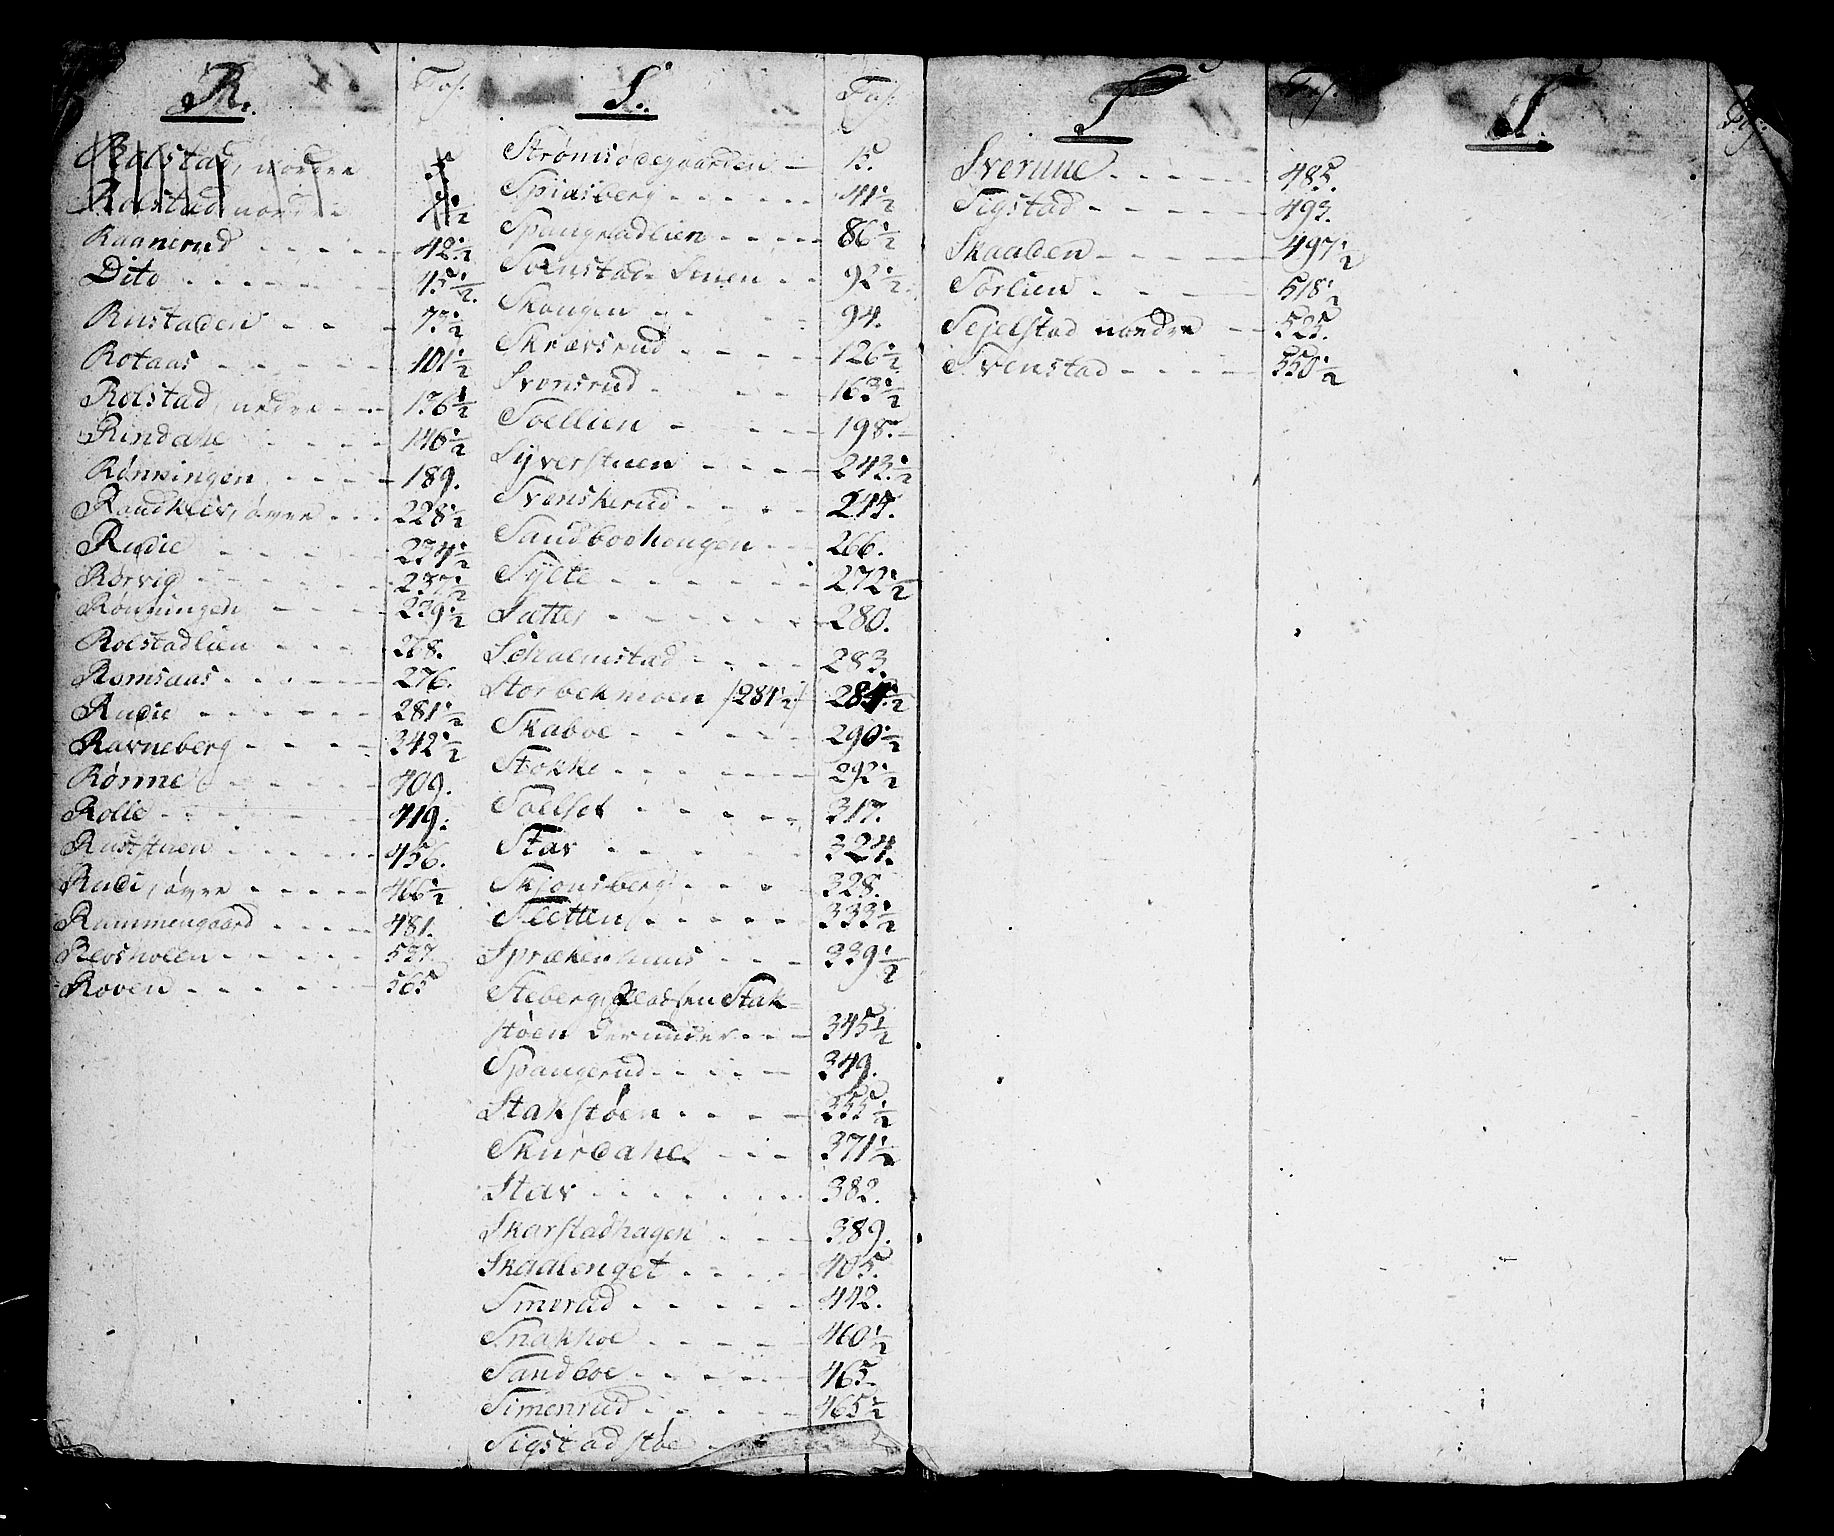 R.
Fol.
Rolstad, nordre 5
Rolstad nordre
Raanerud 42½
Dito 45½
Rustaden 73½
Rotaas 101½
Rolstad, nedre 136½
Rindahl 146½
Rønningen 189.
Randklev, øvre 228½
Rudie 234½
Rørvig 237½
Rønningen 239½
Rolstadlien 268.
Romsaas 276.
Rudie 281½
Ravneberg 342½
Rønne 409.
Rolie 419.
Ruststuen 456.
Rudi, øvre 466½
Rammengaard 481.
Revsholen 537.
Roven 565
S.
Fol.
Strømsødegaarden 15.
Spiasberg 41½
Spangrudlien 86½
Solstad-Smen 92½
Skougen 94.
Skrævsrud 126½
Svensrud 163½
Soellien 198.
Syverstuen 243½
Svenskerud 245.
Sandboehougen 266.
Sylte 272½
Sætter 280.
Scholmstad 283.
Storbekmoen /284½/ 284½
Skaboe 290½
Stokke 292½
Soelset 317.
Stav 324.
Skjonsberg 328.
Sletten 333½
Sprækenhuus 339½
Steberg, Pladsen Stak-
støen derunder 345½
Spangerud 349.
Stakstøen 355½
Skurdahl 371½
Stav 382.
Skarstadhagen 389.
Skaalenget 405.
Smerud 442.
Snakhoe 460½
Sandboe 465.
Simenrud 465½
Sigstadstøe
S
Fol.
Sverine 485.
Sigstad 493.
Skaalden 497½
Sørlien 518½
Sejelstad nordre 525.
Svenstad 550½
S.
Fol.